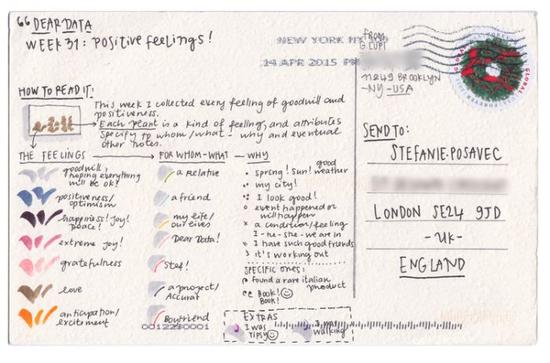 DEAR DATA
WEEK 31: POSITIVE FEELINGS!
NEW YORK NY
14 APR 2015 PM
From
G. LUPI
BROOKLYN
-NY- USA
HOW TO READ IT:
This week I collected every feeling of goodwill and
positiveness.
Each plant is a kind of feeling, and attributes
specify to whom/what - why and eventual
other notes.
THE FEELINGS
goodwill,
hoping everything
will be ok!
positiveness/
optimism
happiness! joy!
peace!
extreme joy!
gratefulness
love
anticipation/
excitement
FOR WHOM-WHAT
a relative
a friend
my life/
ourselves
Dear Data!
Stef!
a project/
Accurat
Boyfriend
WHY
spring! sun! good weather
my city!
I look good!
event happened or
will happen
a condition/feeling
I-he-she-we are in
I have such good friends
it's working out
SPECIFIC ONES:
found a rare italian
product
Book!
Book!
EXTRAS
I was
tipsy
I was
walking
SEND TO:
STEFANIE POSAVEC
LONDON SE24 9JD
-UK-
ENGLAND
GLOBAL
FOREVER